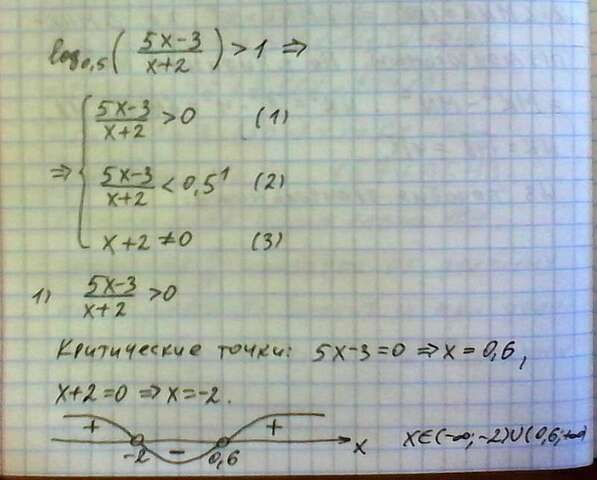 log₀,₅( (5x-3)/(x+2) ) > 1 ⇒
(5x-3)/(x+2) > 0 (1)
⇒ { (5x-3)/(x+2) < 0,5¹ (2)
x+2 ≠ 0 (3)
1) (5x-3)/(x+2) > 0
Критические точки: 5x-3=0 ⇒ x=0,6,
x+2=0 ⇒ x=-2.
+ - + x x∈(-∞;-2)∪(0,6;+∞)
-2 0,6